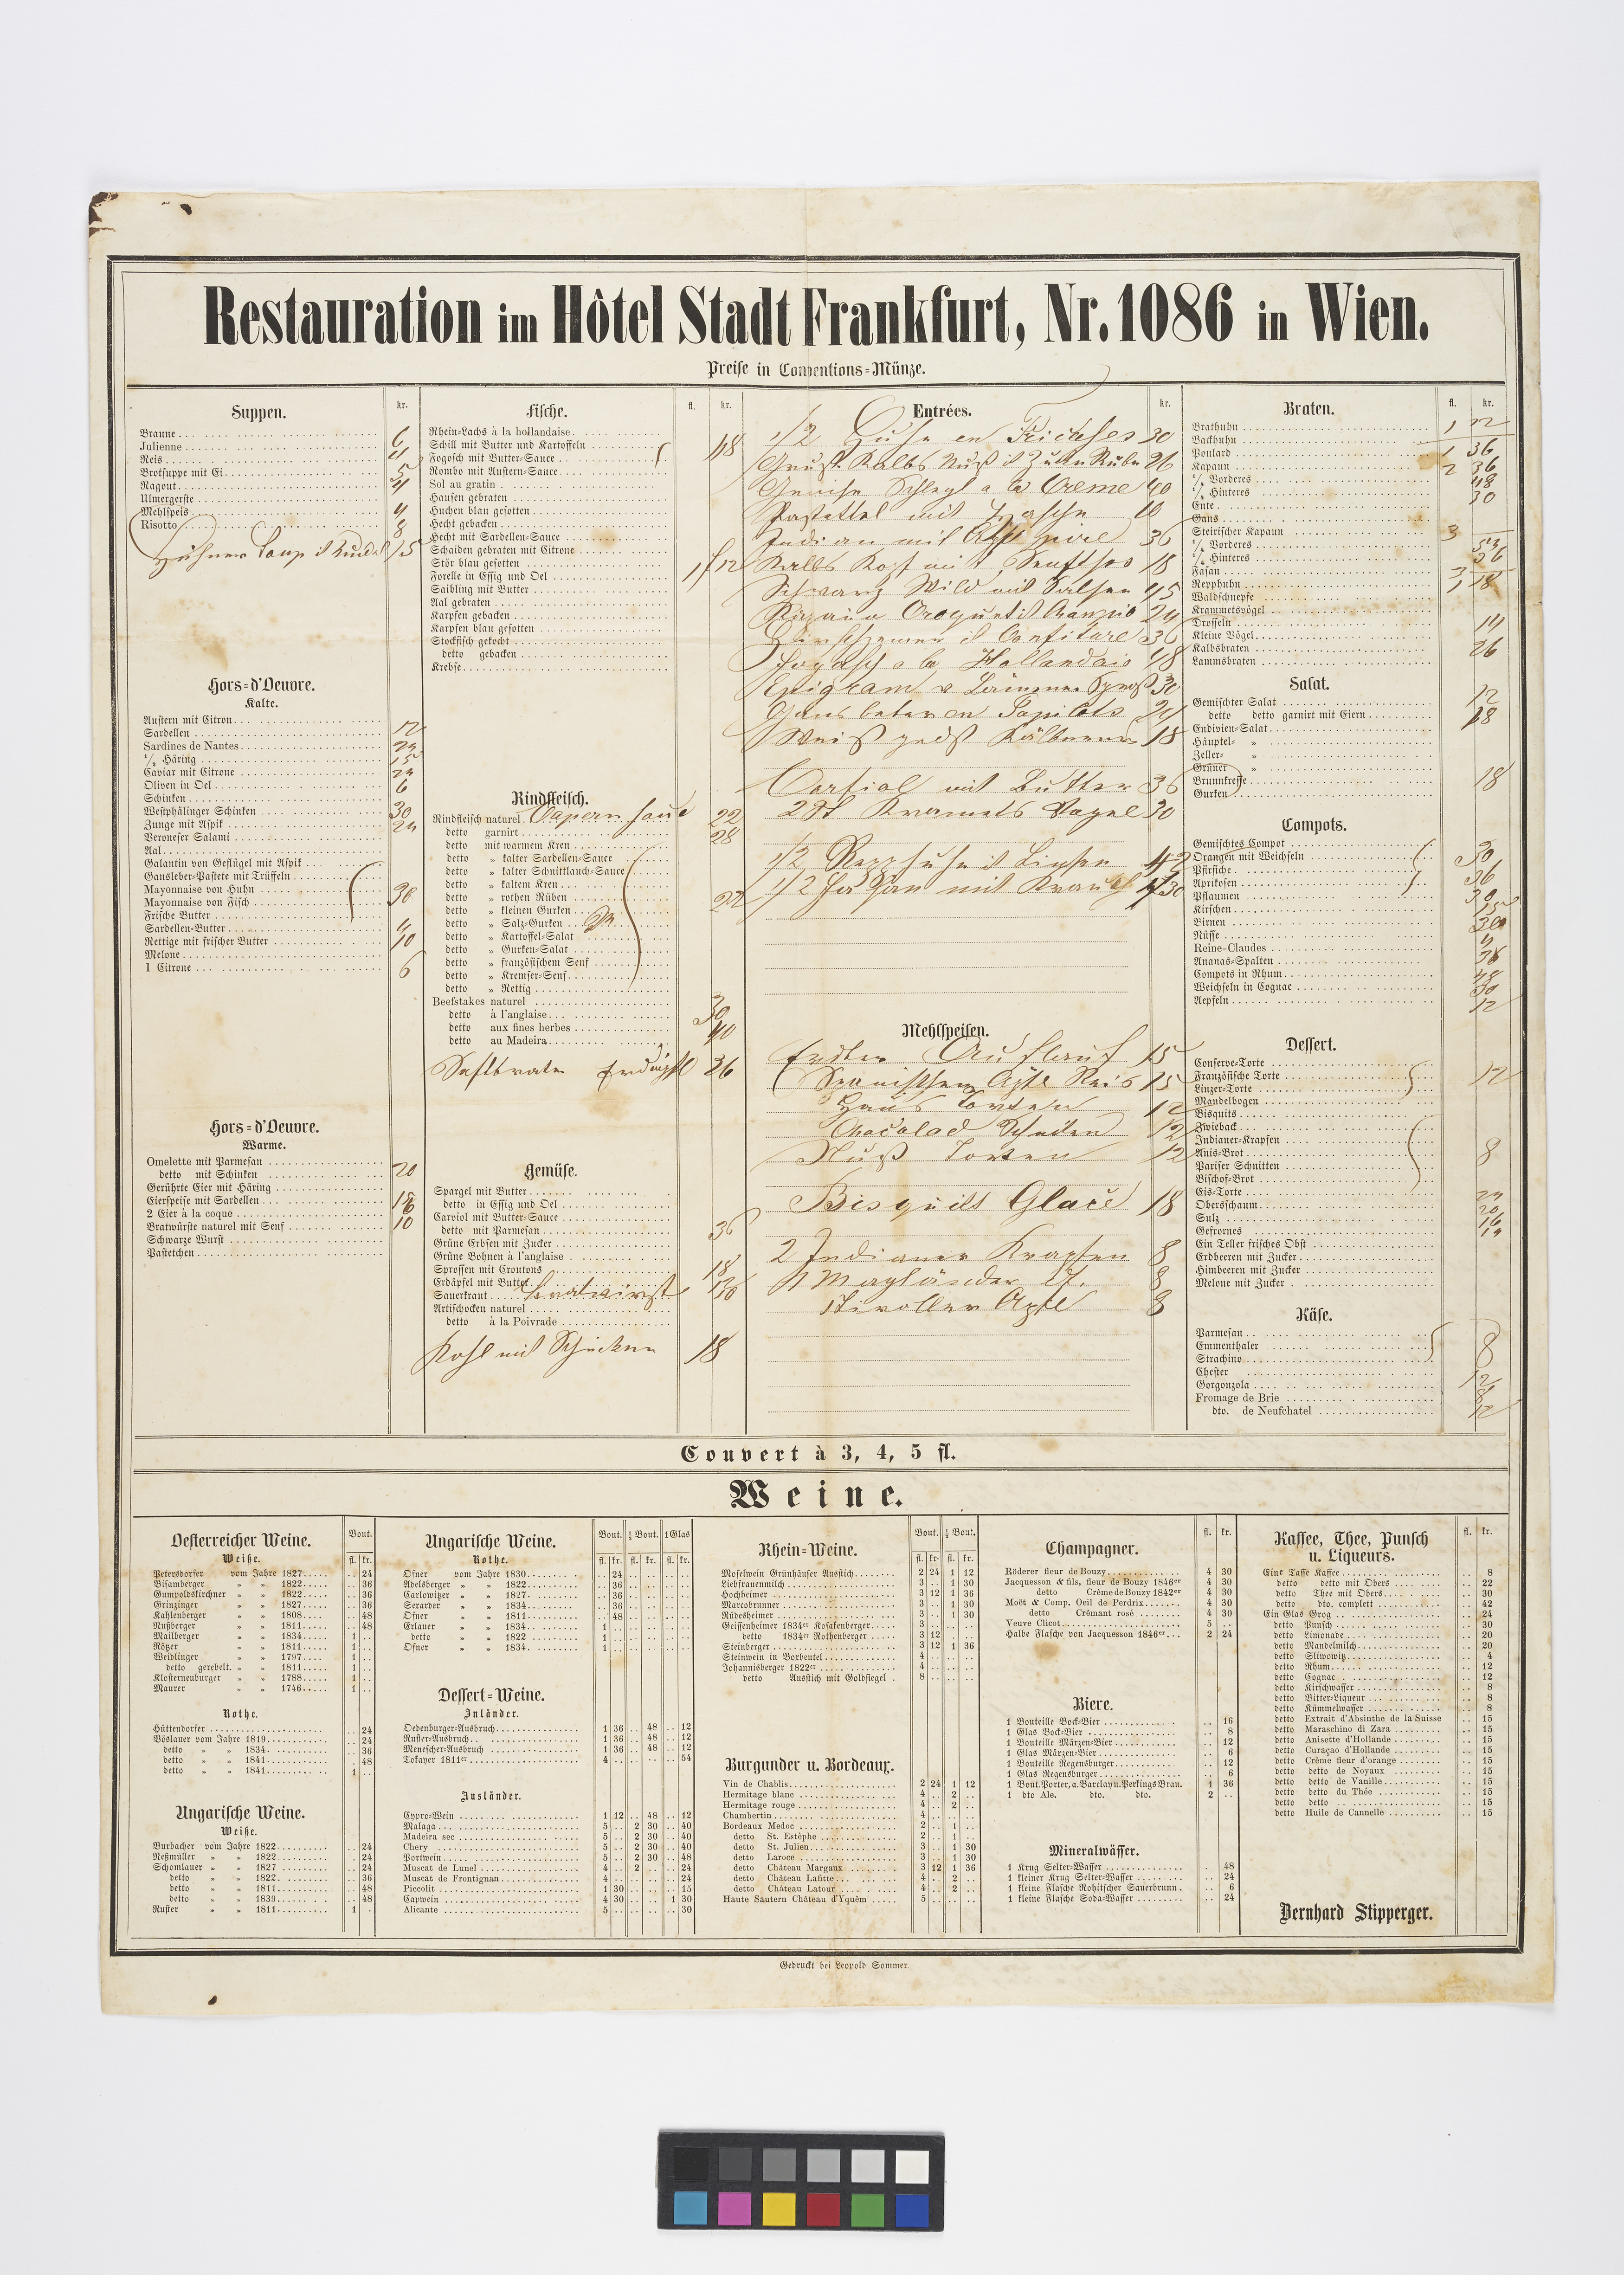 Restauration im Hôtel Stadt Frankfurt, Nr. 1086 in Wien.
Preise in Conventions=Münze.
Suppen.
kr.
Braune 6
Julienne
Reis
Brotsuppe mit Ei 5
Ragout
Ulmergerste
Mehlspeis
Risotto 8
Hors=d'Oeuvre.
Kalte.
Austern mit Citron
Sardellen 12
Sardines de Nantes 24
½ Häring 15
Caviar mit Citrone 24
Oliven in Oel 6
Schinken
Westphälinger Schinken 30
Zunge mit Aspik 24
Veroneser Salami
Aal
Galantin von Geflügel mit Aspik
Gansleber=Pastete mit Trüffeln
Mayonnaise von Huhn
Mayonnaise von Fisch
Frische Butter
Sardellen=Butter
Rettige mit frischer Butter 10
Melone
1 Citrone 6
Hors=d'Oeuvre.
Warme.
Omelette mit Parmesan
detto mit Schinken 20
Gerührte Eier mit Häring
Eierspeise mit Sardellen
2 Eier à la coque
Bratwürste naturel mit Senf 10
Schwarze Wurst
Pastetchen
Fische.
fl. kr.
Rhein=Lachs à la hollandaise
Schill mit Butter und Kartoffeln
Fogosch mit Butter=Sauce 48
Rombo mit Austern=Sauce
Sol au gratin
Hausen gebraten
Huchen blau gesotten
Hecht gebacken
Hecht mit Sardellen=Sauce
Schaiden gebraten mit Citrone
Stör blau gesotten
Forelle in Essig und Oel 1 12
Saibling mit Butter
Aal gebraten
Karpfen gebacken
Karpfen blau gesotten
Stockfisch gekocht
detto gebacken
Krebse
Rindfleisch.
Rindfleisch naturel 22
detto garnirt 28
detto mit warmem Kren
detto » kalter Sardellen=Sauce
detto » kalter Schnittlauch=Sauce
detto » kaltem Kren
detto » rothen Rüben
detto » kleinen Gurken
detto » Salz=Gurken
detto » Kartoffel=Salat
detto » Gurken=Salat
detto » französischem Senf
detto » Kremser=Senf
detto » Rettig
Beefstakes naturel 30
detto à l'anglaise
detto aux fines herbes 40
detto au Madeira
36
Gemüse.
Spargel mit Butter
detto in Essig und Oel
Carviol mit Butter=Sauce
detto mit Parmesan 36
Grüne Erbsen mit Zucker
Grüne Bohnen à l'anglaise
Sprossen mit Croutons 18
Erdäpfel mit Butter
Sauerkraut Bratwürst
Artischocken naturel
detto à la Poivrade
Kohl mit Schinken 18
Entrées.
kr.
1/2 Huhn en Fricasses 30
26
a la Creme 40
36
18
45
24
36
a la Hollandais 48
30
24
18
mit Butter 36
30
1/2
1/2 Fasan mit Kraut
Mehlspeisen.
Auflauf 15
Reis 15
Torten 12
Chocolad 12
Nuß Torten 12
Bisquits Glace 18
2 Indianer Krapfen 8
8
Tiroller 8
Braten.
fl. kr.
Brathuhn
Backhuhn
Poulard
Kapaun
½ Vorderes
½ Hinteres
Ente
Gans
Steirischer Kapaun
½ Vorderes
½ Hinteres
Fasan
Repphuhn
Waldschnepfe
Krammetsvögel
Drosseln
Kleine Vögel
Kalbsbraten 26
Lammsbraten
Salat.
Gemischter Salat 12
detto detto garnirt mit Eiern
Endivien=Salat
Häuptel= »
Zeller= »
Grüner »
Brunnkresse 18
Gurken
Compots.
Gemischtes Compot
Orangen mit Weichseln 30
Pfirsiche
Aprikosen 36
Pflaumen
Kirschen
Birnen
Nüsse
Reine=Claudes
Ananas=Spalten
Compots in Rhum 48
Weichseln in Cognac 30
Aepfeln 12
Dessert.
Conserve=Torte
Französische Torte 12
Linzer=Torte
Mandelbogen
Bisquits
Zwieback
Indianer=Krapfen
Anis=Brot 8
Pariser Schnitten
Bischof=Brot
Eis=Torte 24
Obersschaum 20
Sulz 16
Gefrornes 14
Ein Teller frisches Obst
Erdbeeren mit Zucker
Himbeeren mit Zucker
Melone mit Zucker
Käse.
Parmesan
Emmenthaler 8
Strachino
Chester 12
Gorgonzola
Fromage de Brie
dto. de Neufchatel 12
Couvert à 3, 4, 5 fl.
Weine.
Oesterreicher Weine.
Bout.
Weiße.
fl. kr.
Petersdorfer vom Jahre 1827 24
Bisamberger » » 1822 36
Gumpoldskirchner » » 1822 36
Grinzinger » » 1827 36
Kahlenberger » » 1808 48
Nußberger » » 1811 48
Mailberger » » 1834 1
Rötzer » » 1811 1
Weidlinger » » 1797 1
detto gerebelt. » » 1811 1
Klosterneuburger » » 1788 1
Maurer » » 1746 1
Rothe.
Hüttendorfer 24
Vöslauer vom Jahre 1819 24
detto » » 1834 36
detto » » 1841 48
detto » » 1841 1
Ungarische Weine.
Weiße.
Burbacher vom Jahre 1822 24
Neßmüller » » 1822 24
Schomlauer » » 1827 24
detto » » 1822 36
detto » » 1811 48
detto » » 1839 48
Ruster » » 1811 1
Ungarische Weine.
Bout. ½ Bout. 1 Glas
Rothe.
fl. kr. fl. kr. fl. kr.
Ofner vom Jahre 1830 24
Adelsberger » » 1822 36
Carlowitzer » » 1827 36
Serarder » » 1834 36
Ofner » » 1811 48
Erlauer » » 1834 1
detto » » 1822 1
Ofner » » 1834 1
Dessert=Weine.
Inländer.
Oedenburger=Ausbruch 1 36 48 12
Ruster=Ausbruch 1 36 48 12
Menescher=Ausbruch 1 36 48 12
Tokayer 1811er 4 54
Ausländer.
Cypro=Wein 1 12 48 12
Malaga 5 2 30 40
Madeira sec 5 2 30 40
Chery 5 2 30 40
Portwein 5 2 30 48
Muscat de Lunel 4 2 24
Muscat de Frontignan 4 24
Piccolit 1 30 15
Capwein 4 30 1 30
Alicante 5 30
Rhein=Weine.
Bout. ½ Bout.
fl. kr. fl. kr.
Moselwein Grünhäuser Ausstich 2 24 1 12
Liebfrauenmilch 3 1 30
Hochheimer 3 12 1 36
Marcobrunner 3 1 30
Rüdesheimer 3 1 30
Geissenheimer 1834er Kosakenberger 3
detto 1834er Rothenberger 3 12
Steinberger 3 12 1 36
Steinwein in Borbeutel 4
Johannisberger 1822er 4
detto Ausstich mit Goldsiegel 8
Burgunder u. Bordeaux.
Vin de Chablis 2 24 1 12
Hermitage blanc 4 2
Hermitage rouge 4 2
Chambertin 4
Bordeaux Medoc 2 1
detto St. Estèphe 2 1
detto St. Julien 3 1 30
detto Laroce 3 1 30
detto Château Margaux 3 12 1 36
detto Château Lafitte 4 2
detto Château Latour 4 2
Haute Sautern Château d'Yquêm 5
Champagner.
fl. kr.
Röderer fleur de Bouzy 4 30
Jacquesson & fils, fleur de Bouzy 1846er 4 30
detto Crême de Bouzy 1842er 4 30
Moët & Comp. Oeil de Perdrix 4 30
detto Crêmant rosé 4 30
Veuve Clicot 5
Halbe Flasche von Jacquesson 1846er 2 24
Biere.
1 Bouteille Bock=Bier 16
1 Glas Bock=Bier 8
1 Bouteille Märzen=Bier 12
1 Glas Märzen=Bier 6
1 Bouteille Regensburger 12
1 Glas Regensburger 6
1 Bout. Porter, a. Barclay u. Perkings Brau. 1 36
1 dto Ale. dto. dto. 2
Mineralwässer.
1 Krug Selter=Wasser 48
1 kleiner Krug Selter=Wasser 24
1 kleine Flasche Rohitscher Sauerbrunn 6
1 kleine Flasche Soda=Wasser 24
Kaffee, Thee, Punsch
u. Liqueurs.
fl. kr.
Eine Tasse Kaffee 8
detto detto mit Obers 22
detto Thee mit Obers 30
detto dto. complett 42
Ein Glas Grog 24
detto Punsch 30
detto Limonade 20
detto Mandelmilch 20
detto Sliwowitz 4
detto Rhum 12
detto Cognac 12
detto Kirschwasser 8
detto Bitter=Liqueur 8
detto Kümmelwasser 8
detto Extrait d'Absinthe de la Suisse 15
detto Maraschino di Zara 15
detto Anisette d'Hollande 15
detto Curaçao d'Hollande 15
detto Crême fleur d'orange 15
detto detto de Noyaux 15
detto detto de Vanille 15
detto detto du Thée 15
detto detto 15
detto Huile de Cannelle 15
Bernhard Stipperger.
Gedruckt bei Leopold Sommer.